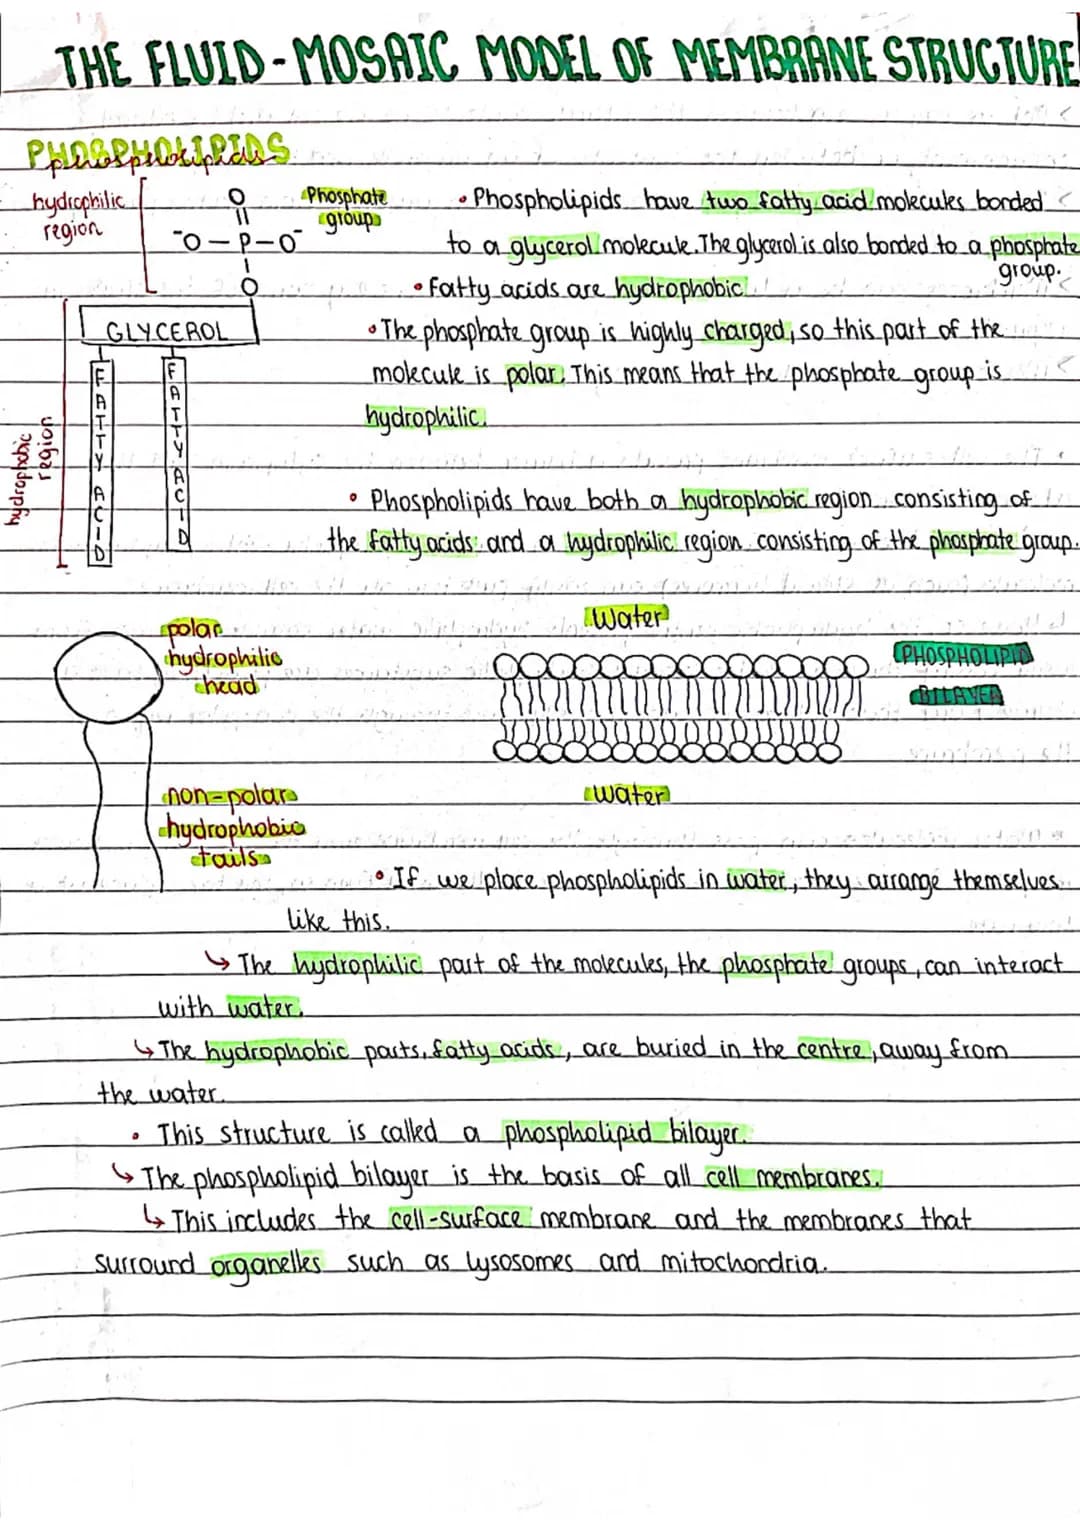 THE FLUID-MOSAIC MODEL OF MEMBRANE STRUCTURE
PHOSPHOLIPIDS
phospholipids
hydrophilic
region
O
⁻O-P-O⁻
O
Phosphate
group
• Phospholipids have two fatty acid molecules bonded
to a glycerol molecule. The glycerol is also bonded to a phosphate
group.
• Fatty acids are hydrophobic.
• The phosphate group is highly charged, so this part of the
molecule is polar. This means that the phosphate group is
hydrophilic.
GLYCEROL
FATTY ACID
FATTY ACID
hydrophobic
region
• Phospholipids have both a hydrophobic region consisting of
the fatty acids and a hydrophilic region consisting of the phosphate group.
polar
hydrophilic
head
non-polar
hydrophobic
tails
Water
PHOSPHOLIPID
BILAYER
water
• If we place phospholipids in water, they arrange themselves
like this.
↳ The hydrophilic part of the molecules, the phosphate groups, can interact
with water.
↳ The hydrophobic parts, fatty acids, are buried in the centre, away from
the water.
• This structure is called a phospholipid bilayer.
↳ The phospholipid bilayer is the basis of all cell membranes.
↳ This includes the cell-surface membrane and the membranes that
surround organelles such as lysosomes and mitochondria.